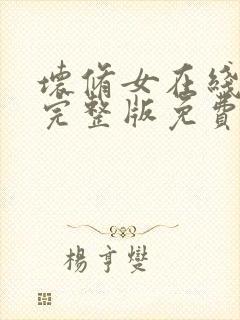 壞脩女在綫
完整版免費
楊亨燮